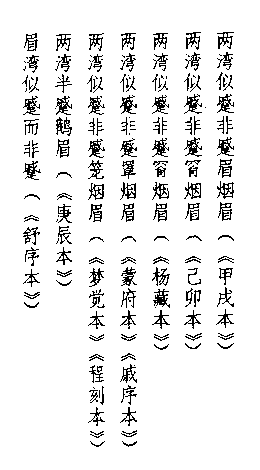 两湾似蹙非蹙眉烟眉（《甲戌本》）
两湾似蹙非蹙罥烟眉（《己卯本》）
两湾似蹙非蹙罥烟眉（《杨藏本》）
两湾似蹙非蹙罩烟眉（《蒙府本》《戚序本》）
两湾似蹙非蹙笼烟眉（《梦觉本》《程刻本》）
两湾半蹙鹅眉（《庚辰本》）
眉湾似蹙而非蹙（《舒序本》）